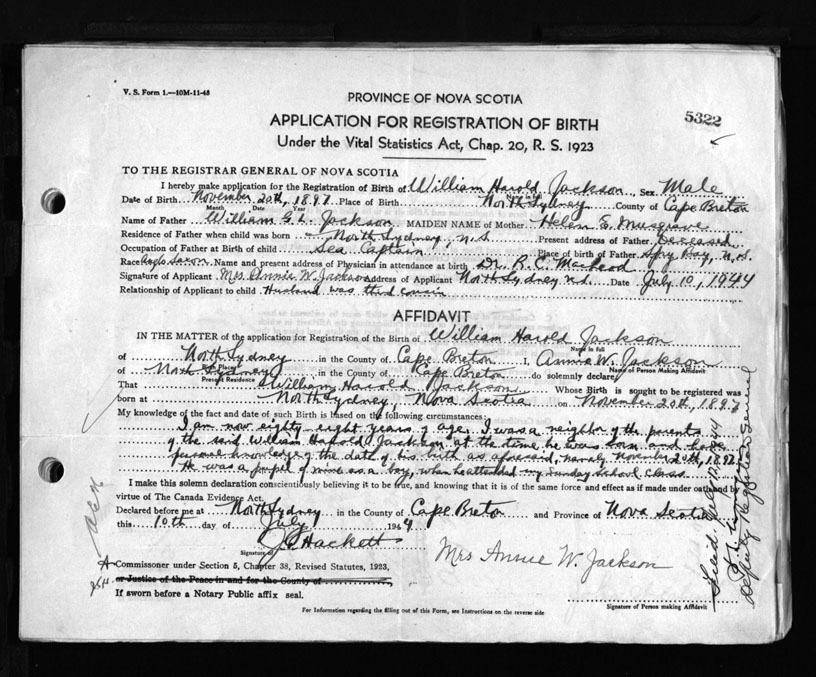 V. S. Form 1.—10M-11-43
PROVINCE OF NOVA SCOTIA
5322
APPLICATION FOR REGISTRATION OF BIRTH
Under the Vital Statistics Act, Chap. 20, R. S. 1923
TO THE REGISTRAR GENERAL OF NOVA SCOTIA
I hereby make application for the Registration of Birth of William Harold Jackson, Sex Male
Name in full
Date of Birth November 20th, 1897 Place of Birth North Sydney County of Cape Breton
Month Date Year
Name of Father William G. L. Jackson MAIDEN NAME of Mother Helen S. Musgrave
Residence of Father when child was born North Sydney, N.S Present address of Father Deceased
Occupation of Father at Birth of child Sea Captain Place of birth of Father Spry Bay, N.S.
Race Anglo Saxon Name and present address of Physician in attendance at birth Dr. R. C. McLeod
Signature of Applicant Mrs Annie W. Jackson Address of Applicant North Sydney N.S. Date July 10, 1944
Relationship of Applicant to child Husband was third cousin
AFFIDAVIT
IN THE MATTER of the application for Registration of the Birth of William Harold Jackson
Name in full
of North Sydney in the County of Cape Breton I, Annie W. Jackson
Place Name of Person Making Affidavit
of North Sydney in the County of Cape Breton do solemnly declare
Present Residence
That William Harold Jackson Whose Birth is sought to be registered was
born at North Sydney, Nova Scotia on November 20th, 1897
My knowledge of the fact and date of such Birth is based on the following circumstances:
I am now eighty eight years of age. I was a neighbor of the parents
of the said William Harold Jackson at the time he was born and have
personal knowledge of the date of his birth as aforesaid, namely November 20th, 1897
He was a pupil of mine as a boy, when he attended my Sunday School Class
I make this solemn declaration conscientiously believing it to be true, and knowing that it is of the same force and effect as if made under oath and by
virtue of The Canada Evidence Act.
Declared before me at North Sydney in the County of Cape Breton and Province of Nova Scotia
this 10th day of July 1944
J. Hackett
Signature of
Mrs Annie W. Jackson
A Commissioner under Section 5, Chapter 38, Revised Statutes, 1923,
or Justice of the Peace in and for the County of
If sworn before a Notary Public affix seal.
Signature of Person making Affidavit
For Information regarding the filling out of this Form, see Instructions on the reverse side
Deputy Registrar General